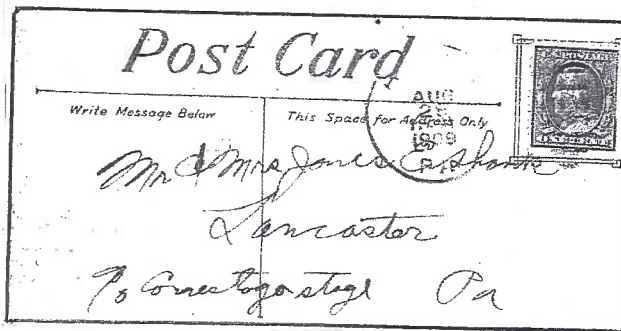 Post Card
Write Message Below
This Space for Address Only
AUG
25
1909
Mr & Mrs Jones E. Shank
Lancaster
Conestoga stage Pa